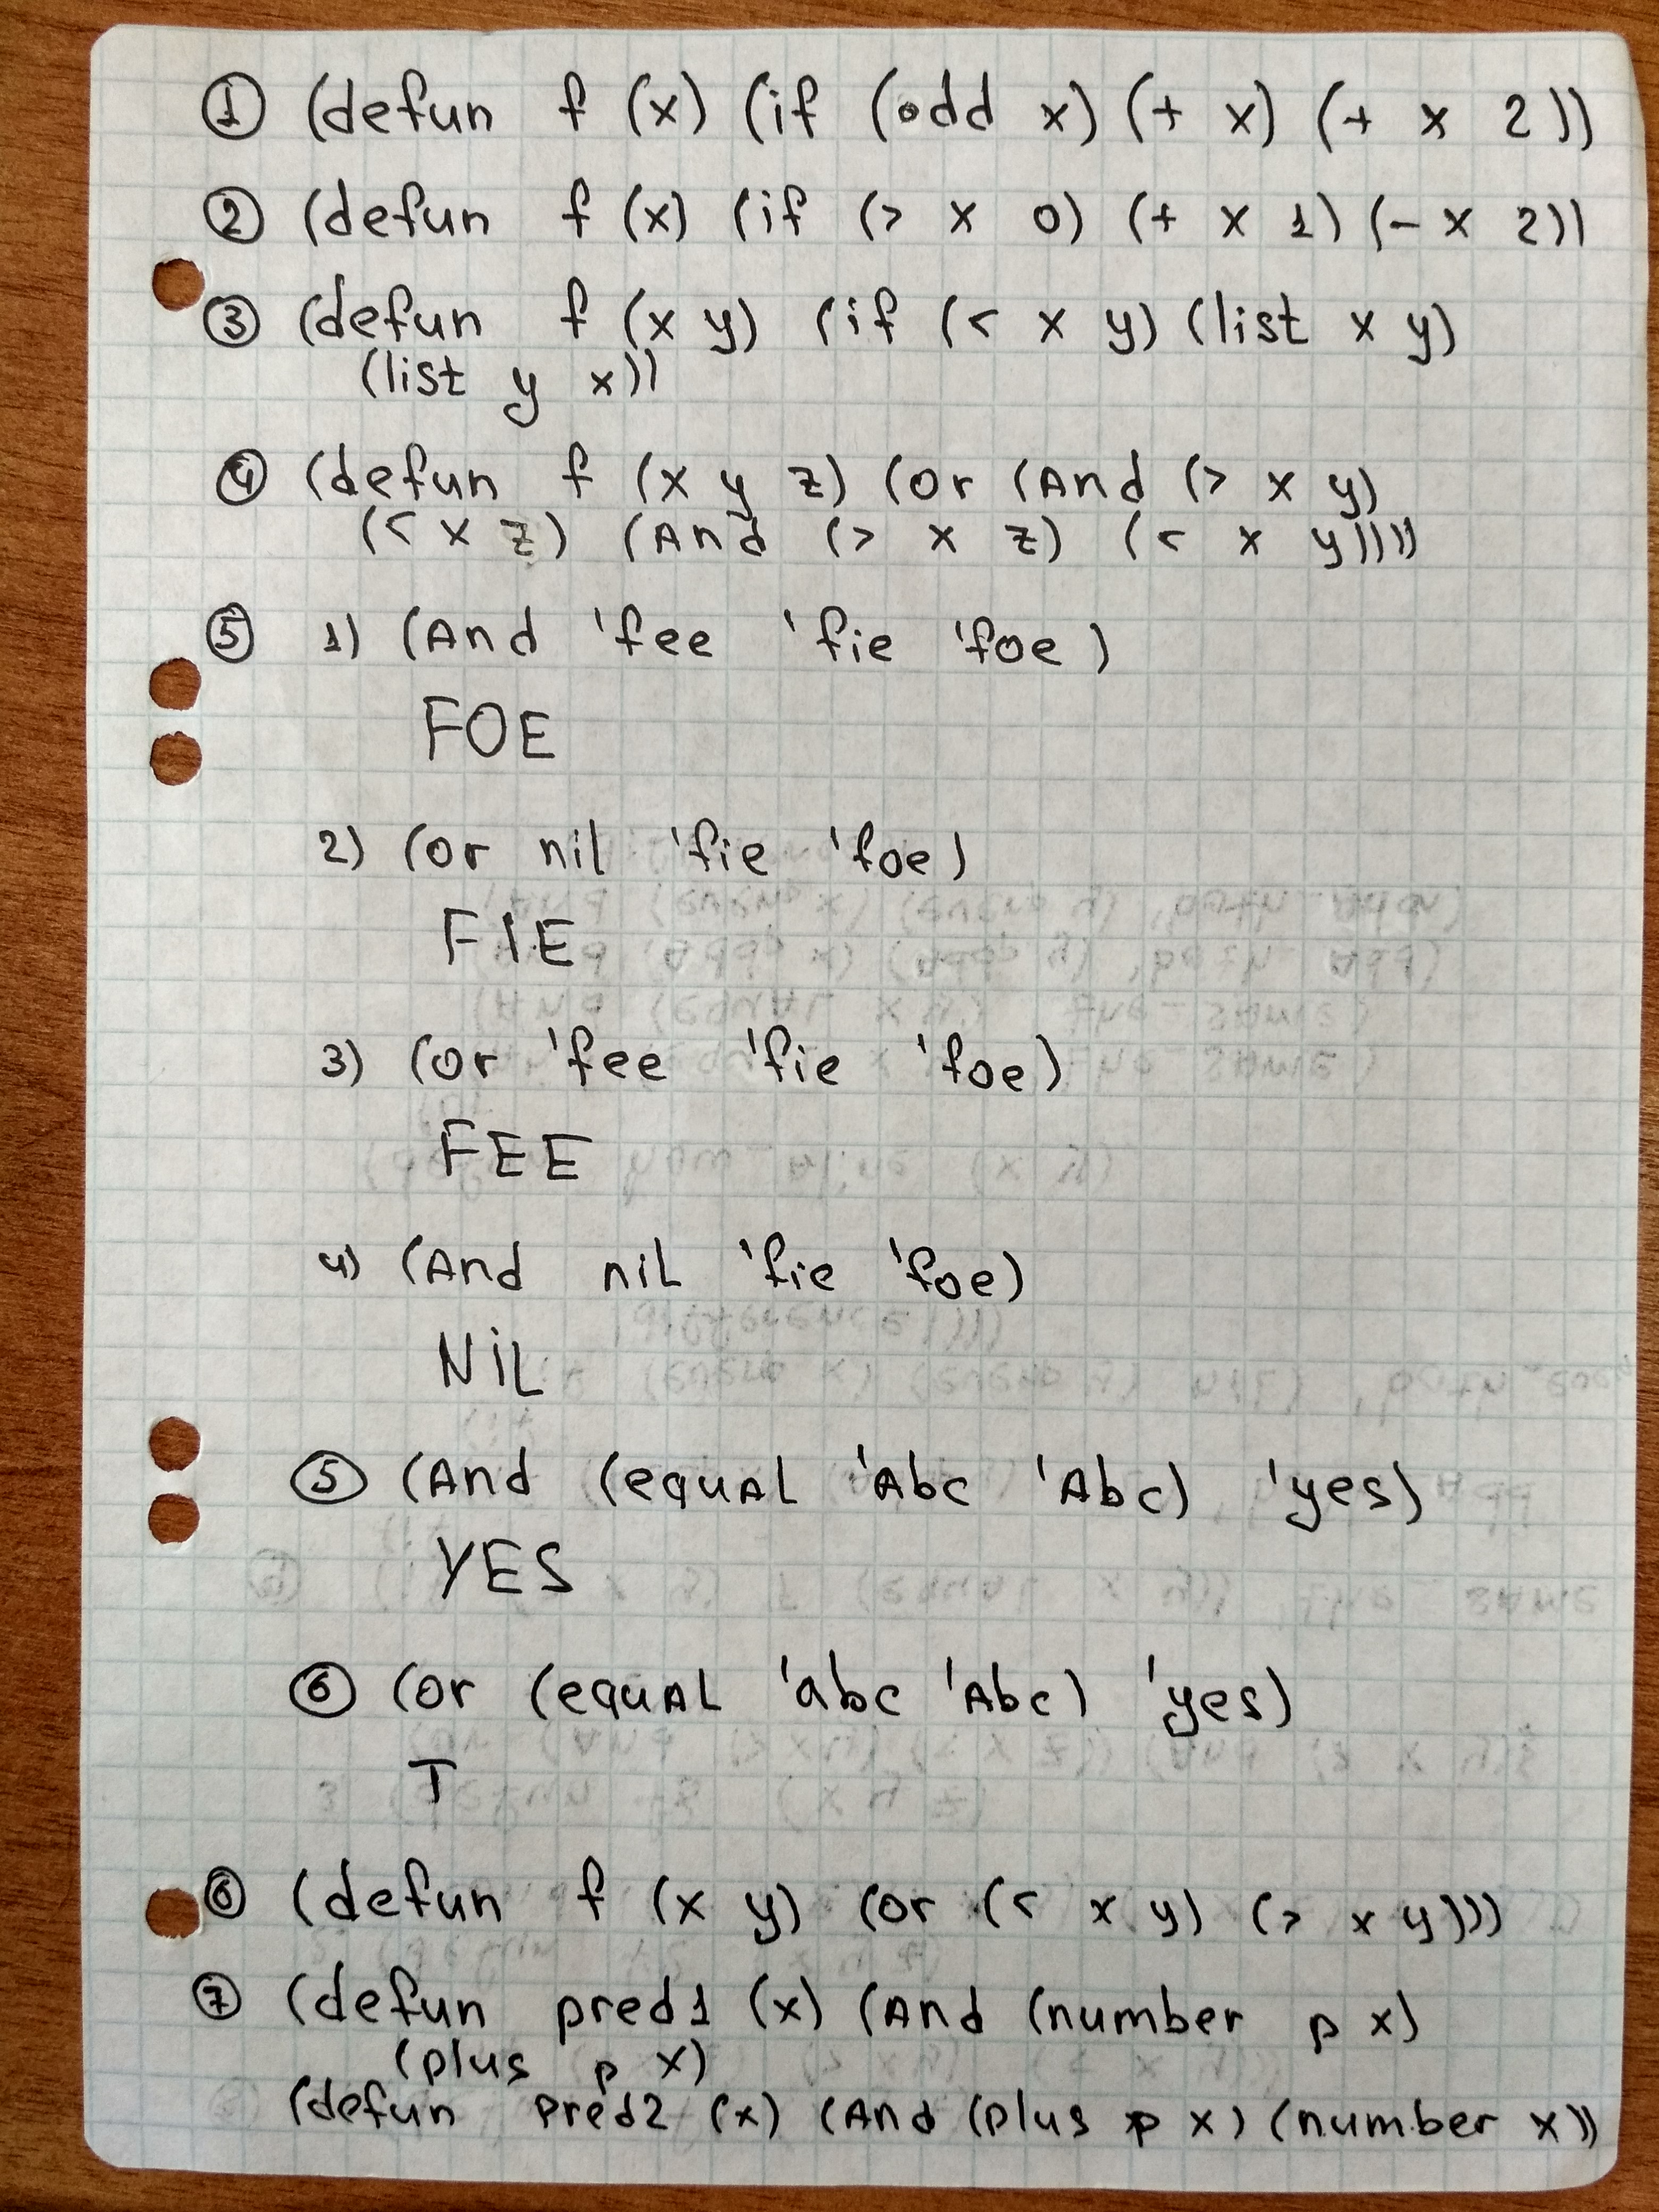 ① (defun f (x) (if (odd x) (+ x) (+ x 2))
② (defun f (x) (if (> x 0) (+ x 1) (- x 2))
③ (defun f (x y) (if (< x y) (list x y)
(list y x))
④ (defun f (x y z) (or (And (> x y)
(< x z) (And (> x z) (< x y))))
⑤ 1) (And 'fee 'fie 'foe)
FOE
2) (or nil 'fie 'foe)
FIE
3) (or 'fee 'fie 'foe)
FEE
4) (And nil 'fie 'foe)
NiL
⑤ (And (equAL 'Abc 'Abc) 'yes)
YES
⑥ (or (equAL 'abc 'Abc) 'yes)
T
⑥ (defun f (x y) (or (< x y) (> x y)))
⑦ (defun pred1 (x) (And (number p x)
(plus p x)
(defun pred2 (x) (And (plus p x) (number x))